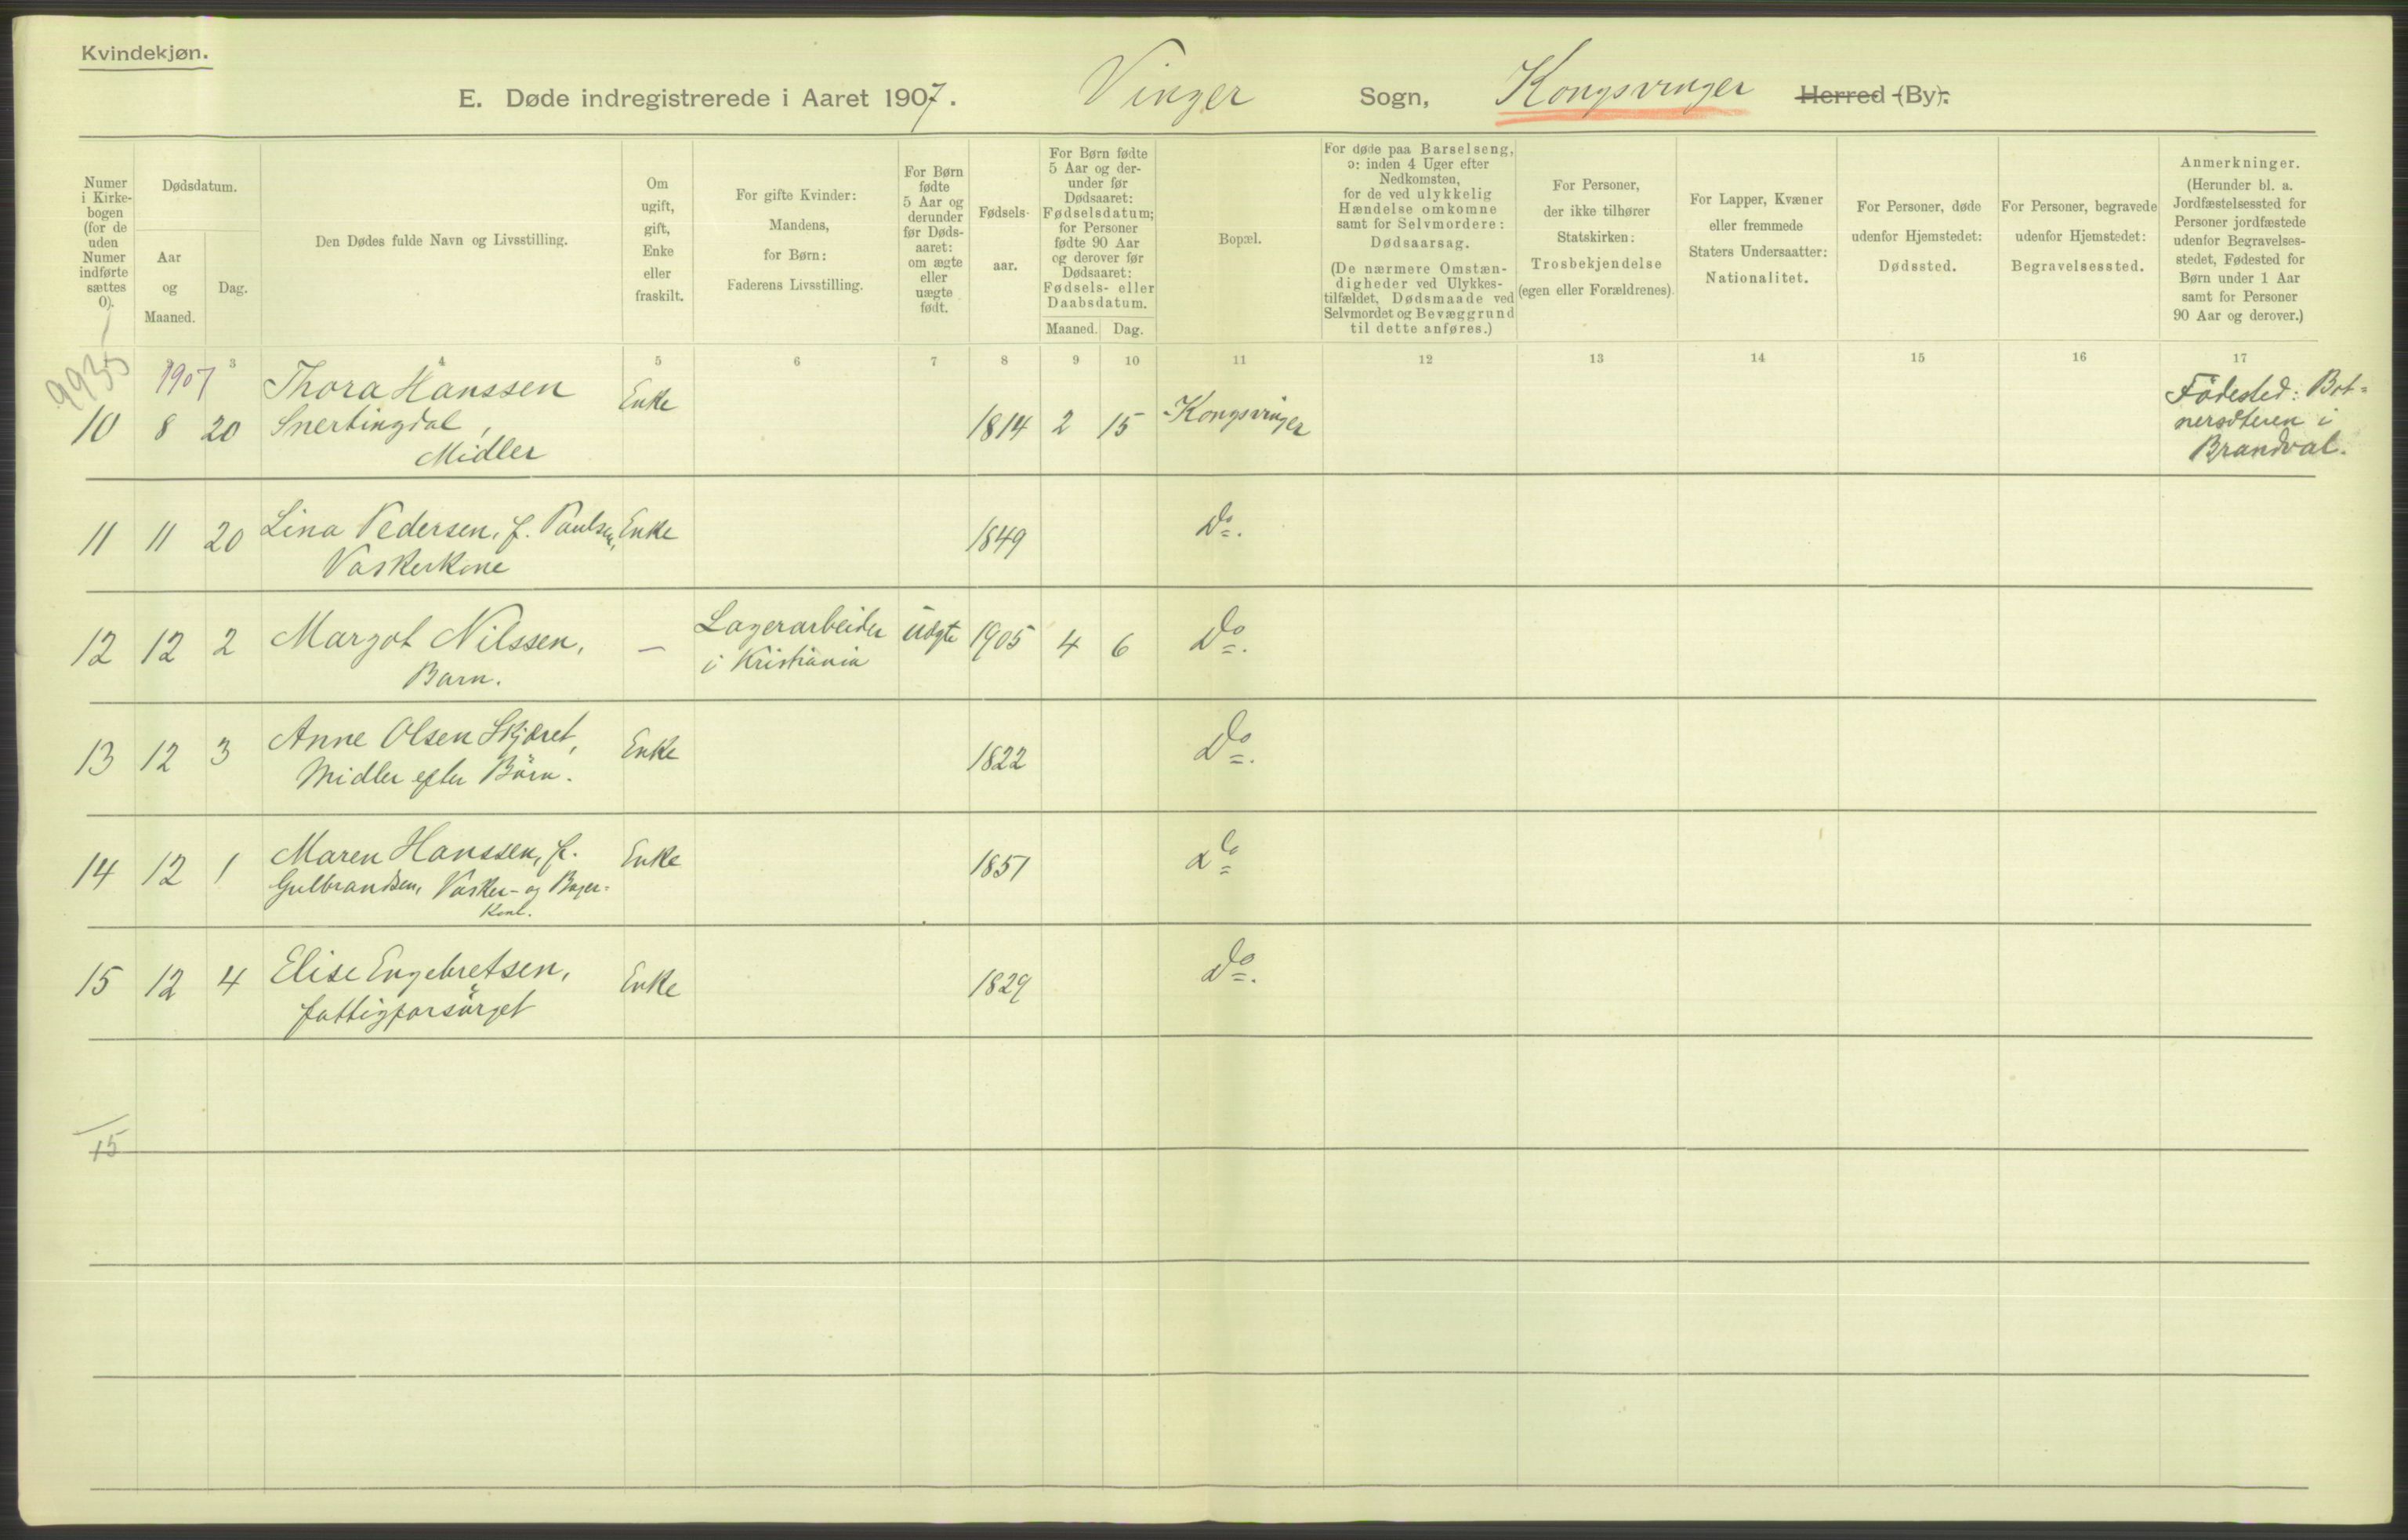 Kvindekjøn.
E. Døde indregistrerede i Aaret 1907. Vinger Sogn, Kongsvinger Herred (By).
Numer i Kirkebogen (for de uden Numer indførte sættes 0).
Dødsdatum.
Aar og Maaned.
Dag.
Den Dødes fulde Navn og Livsstilling.
Om ugift, gift, Enke eller fraskilt.
For gifte Kvinder: Mandens, for Børn: Faderens Livsstilling.
For Børn fødte 5 Aar og derunder før Dødsaaret: om ægte eller uægte født.
Fødselsaar.
For Børn fødte 5 Aar og derunder før Dødsaaret: Fødselsdatum; for Personer fødte 90 Aar og derover før Dødsaaret: Fødsels- eller Daabsdatum.
Maaned. Dag.
Bopæl.
For døde paa Barselseng, ɔ: inden 4 Uger efter Nedkomsten, for de ved ulykkelig Hændelse omkomne samt for Selvmordere: Dødsaarsag. (De nærmere Omstændigheder ved Ulykkestilfældet, Dødsmaade ved Selvmordet og Bevæggrund til dette anføres.)
For Personer, der ikke tilhører Statskirken: Trosbekjendelse (egen eller Forældrenes).
For Lapper, Kvæner eller fremmede Staters Undersaatter: Nationalitet.
For Personer, døde udenfor Hjemstedet: Dødssted.
For Personer, begravede udenfor Hjemstedet: Begravelsessted.
Anmerkninger. (Herunder bl. a. Jordfæstelsessted for Personer jordfæstede udenfor Begravelsesstedet, Fødested for Børn under 1 Aar samt for Personer 90 Aar og derover.)
3 4 5 6 7 8 9 10 11 12 13 14 15 16 17
9935
1907
10 8 20 Thora Hanssen Enke 1814 2 15 Kongsvinger Födested: Bot=
Snertingdal, nersæteren i
Midler Brandval.
11 11 20 Lina Pedersen, f. Paulsen, Enke 1849 Do.
Vaskerkone
12 12 2 Margot Nilssen, — Lagerarbeider uægte 1905 4 6 Do.
Barn. i Kristiania
13 12 3 Anne Olsen Skjæret, Enke 1822 Do.
Midler efter Börn.
14 12 1 Maren Hanssen, f. Enke 1851 do
Gulbrandsen, Vasker- og Bager=
kone.
15 12 4 Elise Engebretsen, Enke 1829 Do.
fattigforsörget
15